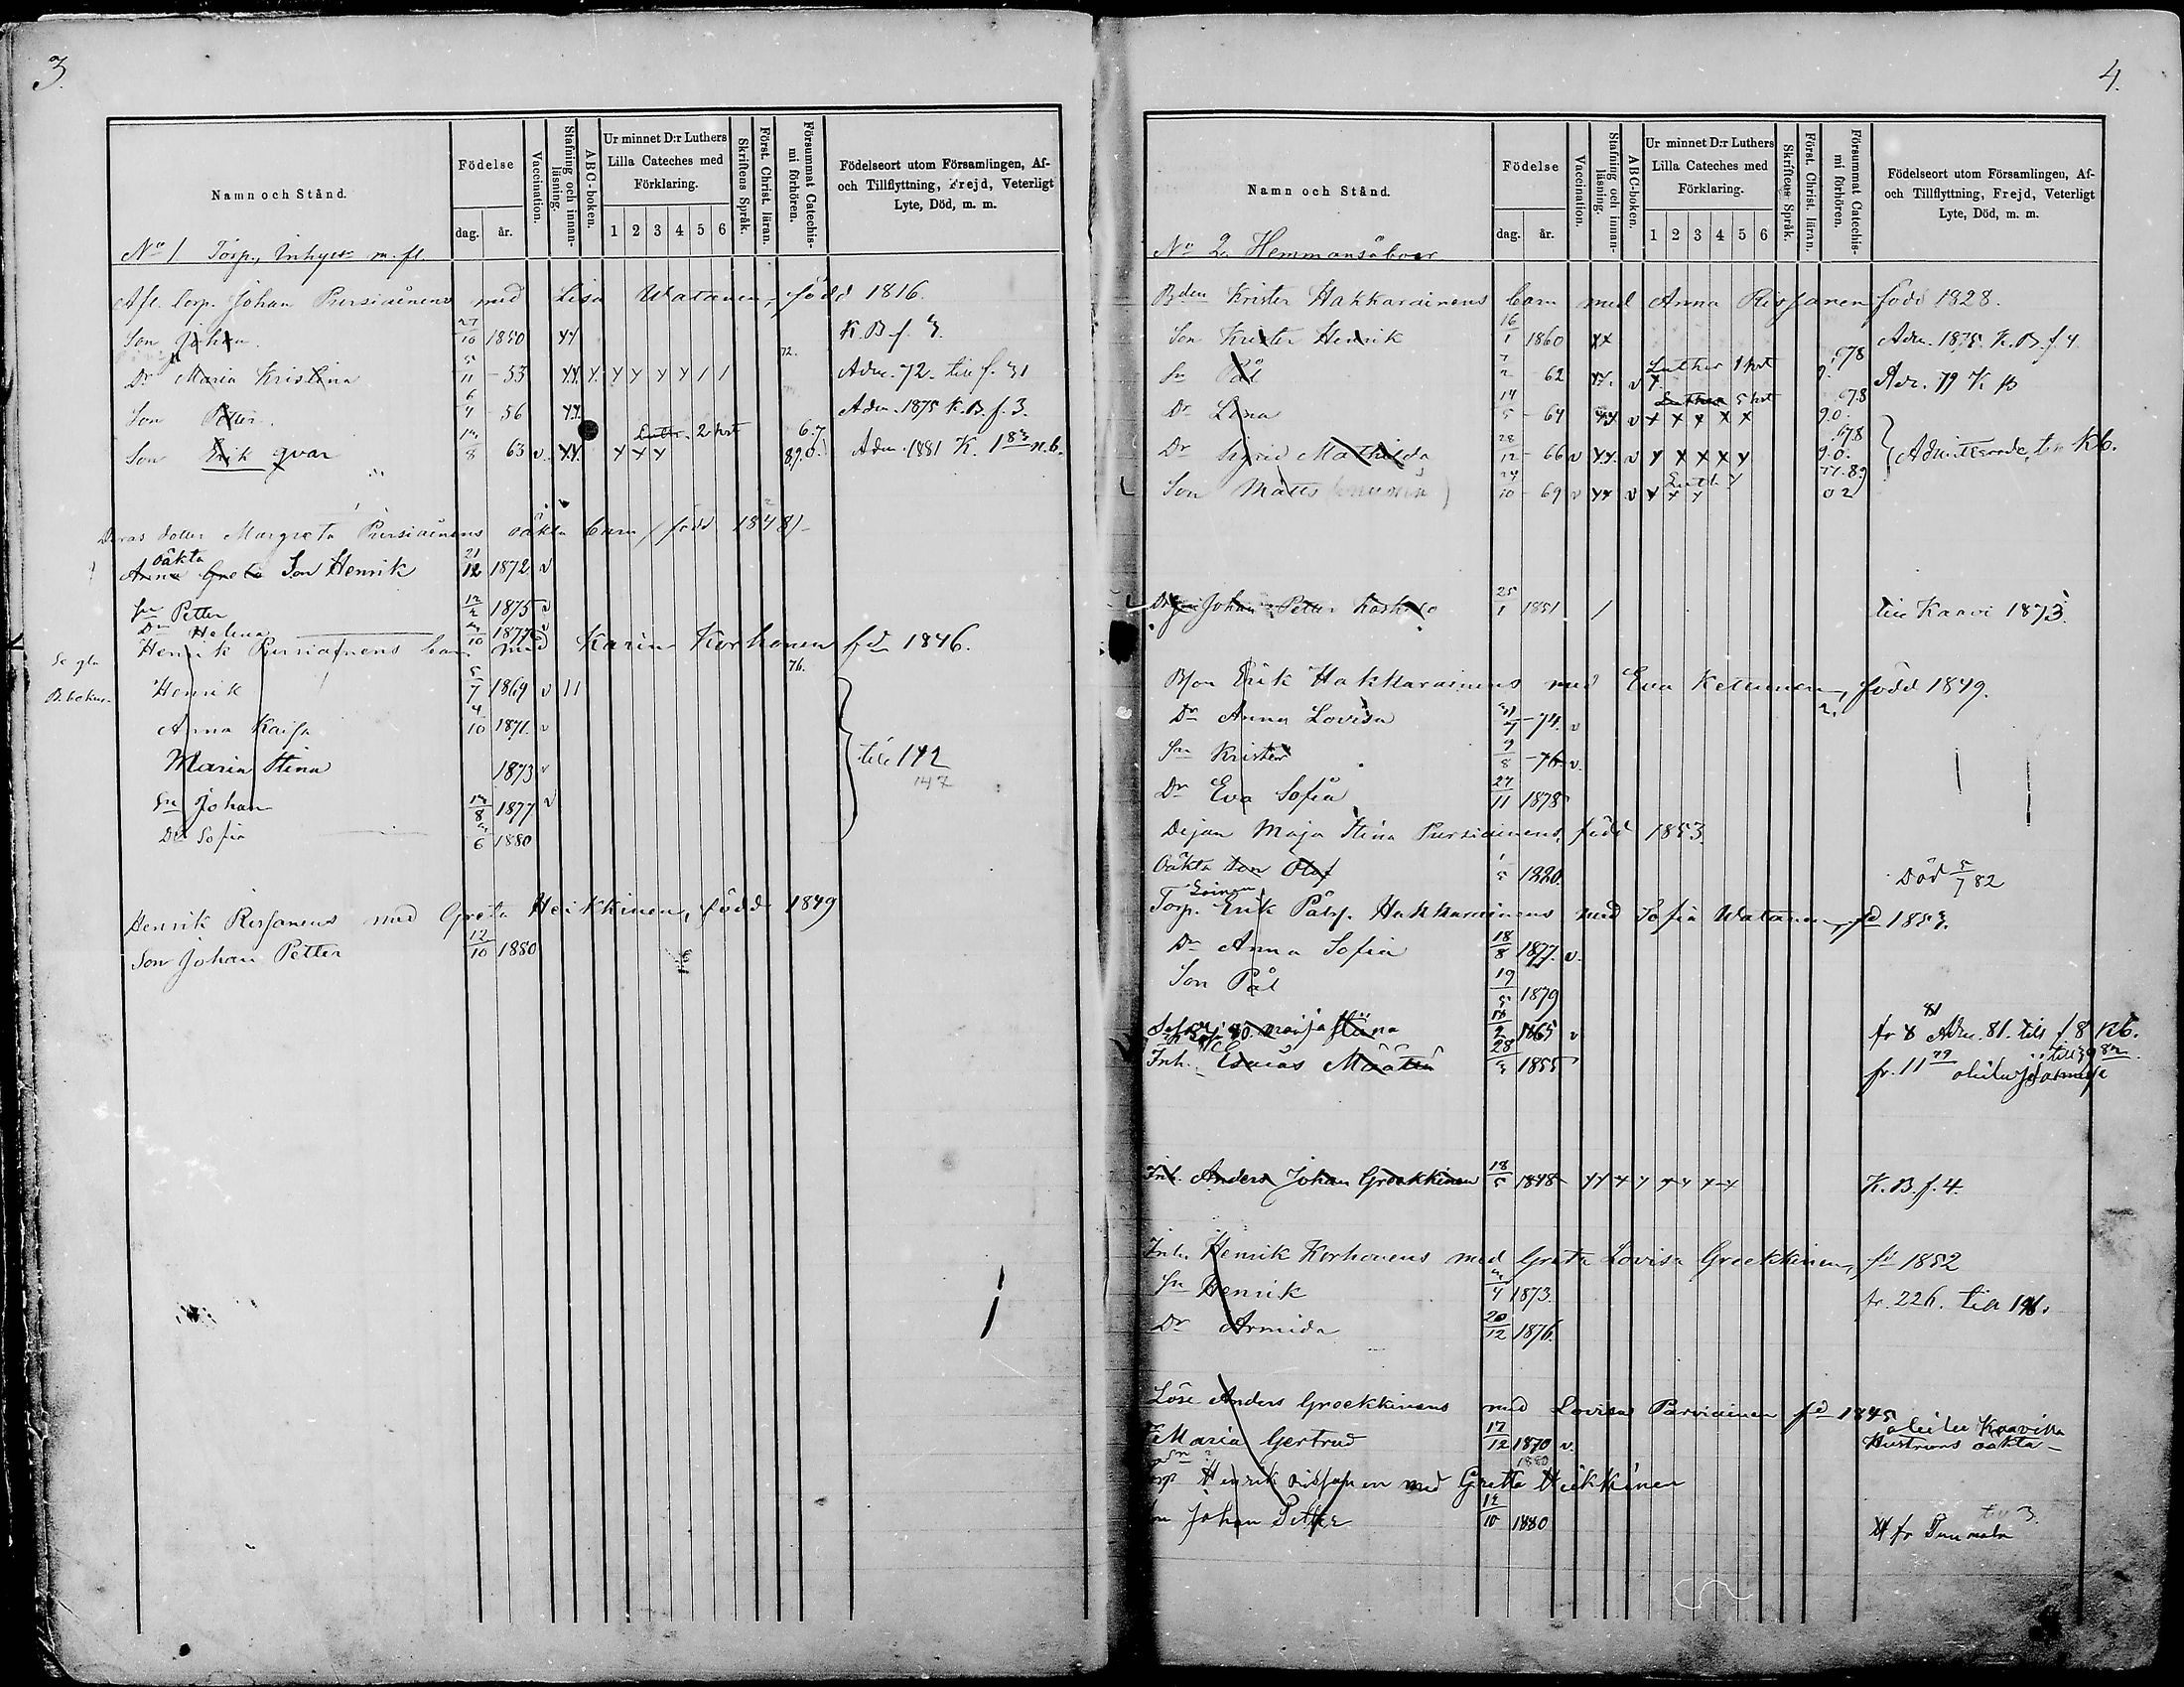 3.
Namn och Stånd.
Födelse
dag.
år.
Vaccination.
Stafning och innan-
läsning.
ABC-boken.
Ur minnet D:r Luthers
Lilla Cateches med
Förklaring.
1 2 3 4 5 6
Skriftens Språk.
Först. Christ. läran.
Försummat Catechis-
mi förhören.
Födelseort utom Församlingen, Af-
och Tillflyttning, Frejd, Veterligt
Lyte, Död, m. m.
No 1 Torp., Inhyse m. fl.
Afl. Torp. Johan Pursiainens med Lisa Watanen, född 1816.
Son Johan. 27/10 1850 K. B. f. 3.
Dr Maria Kristina 5/11 -53 72. Adm. 72. till f. 31
Son Petter. 6/4 -56 Adm. 1875 K. B. f. 3.
Son Erik qvar 13/8 63 v. Luth. 2 hst 6.7 89.0. Adm. 1881 K. n.b.
Deras dotter Margreta Pursiainens oäkta barn, (född 1848)
oäkta
Anna Greta Son Henrik 21/12 1872 v
Sn Petter 1875 v
Dr Helena 1877 v
Henrik Pursiainens barn med Karin Korhonen fd 1846.
76.
Henrik 5/7 1869 v 11
Anna Kaisa 4/10 1871. v
Maria Stina 1873 v
till 142
147
Sn Johan 13/8 1877 v
Dr Sofia 1880
Henrik Risanens med Greta Heikkinen, född 1849
Son Johan Petter 12/10 1880
4.
Namn och Stånd.
Födelse
dag.
år.
Vaccination.
Stafning och innan-
läsning.
ABC-boken.
Ur minnet D:r Luthers
Lilla Cateches med
Förklaring.
1 2 3 4 5 6
Skriftens Språk.
Först. Christ. läran.
Försummat Catechis-
mi förhören.
Födelseort utom Församlingen, Af-
och Tillflyttning, Frejd, Veterligt
Lyte, Död, m. m.
No 2. Hemmansåboer
Bden Krister Hakkarainens barn med Anna Rissanen född 1828.
Son Krister Henrik 16/1 1860 Adm. 1875. K. B. f. 4.
Sn Pål 7/2 62 v Luther 1 hst 678 9. Adm. 79 K B
Dr Lena 14/5 - 64 v Luther 5 hst 678 90.
Dr Sigrid Mathilda 28/12 - 66 v v 678 90. Admitterade, till Kb.
Son Matts 24/10 - 69 v v Luth. 77.89 02
Johan Petter 25/1 1851 / till Kaavi 1873.
Bson Erik Hakkarainens med Eva Kettunen, född 1849.
Dr Anna Lovisa -74. v
Sn Krister 9/8 -76 v.
Dr Eva Sofia 27/11 1878
Maja Stina Pursiainens, född 1853.
Oäkta son Olof 1/5 1880. Död 5/7 82
Torp. Erik Pålsf. Hakkarainens med Sofia Watanen, fd 1853.
Dr Anna Sofia 18/8 1877. v.
Son Pål 19/5 1879
maija stina 1865 v fr 8 Adm. 81. till f 8 Kb.
Inh. Esaias Määttä 28/3 1855 fr. 11
Inh. Anders Johan Groekkinen 18/5 1848 K. B. f. 4.
Inh. Henrik Korhonens med Greta Lovisa Groekkinen, fd 1852
Sn Henrik 1873. fr. 226. till 196.
Dr Armida 20/12 1876.
Löse Anders Groekkinens med Lovisa Parviainen fd 1845
Maria Gertrud 17/12 1870 v. Hustruns oäkta
1880
Henrik rissanen med Gretta Heikkinen
Johan Petter 12/10 1880 fr